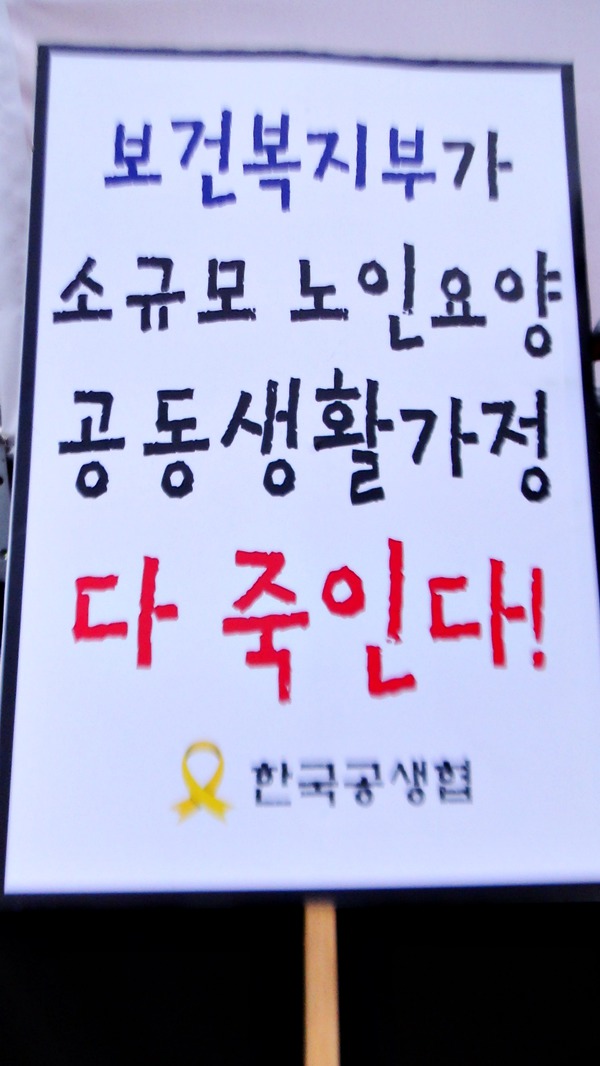 보건복지부가
소규모 노인요양
공동생활가정
다 죽인다!
한국공생협